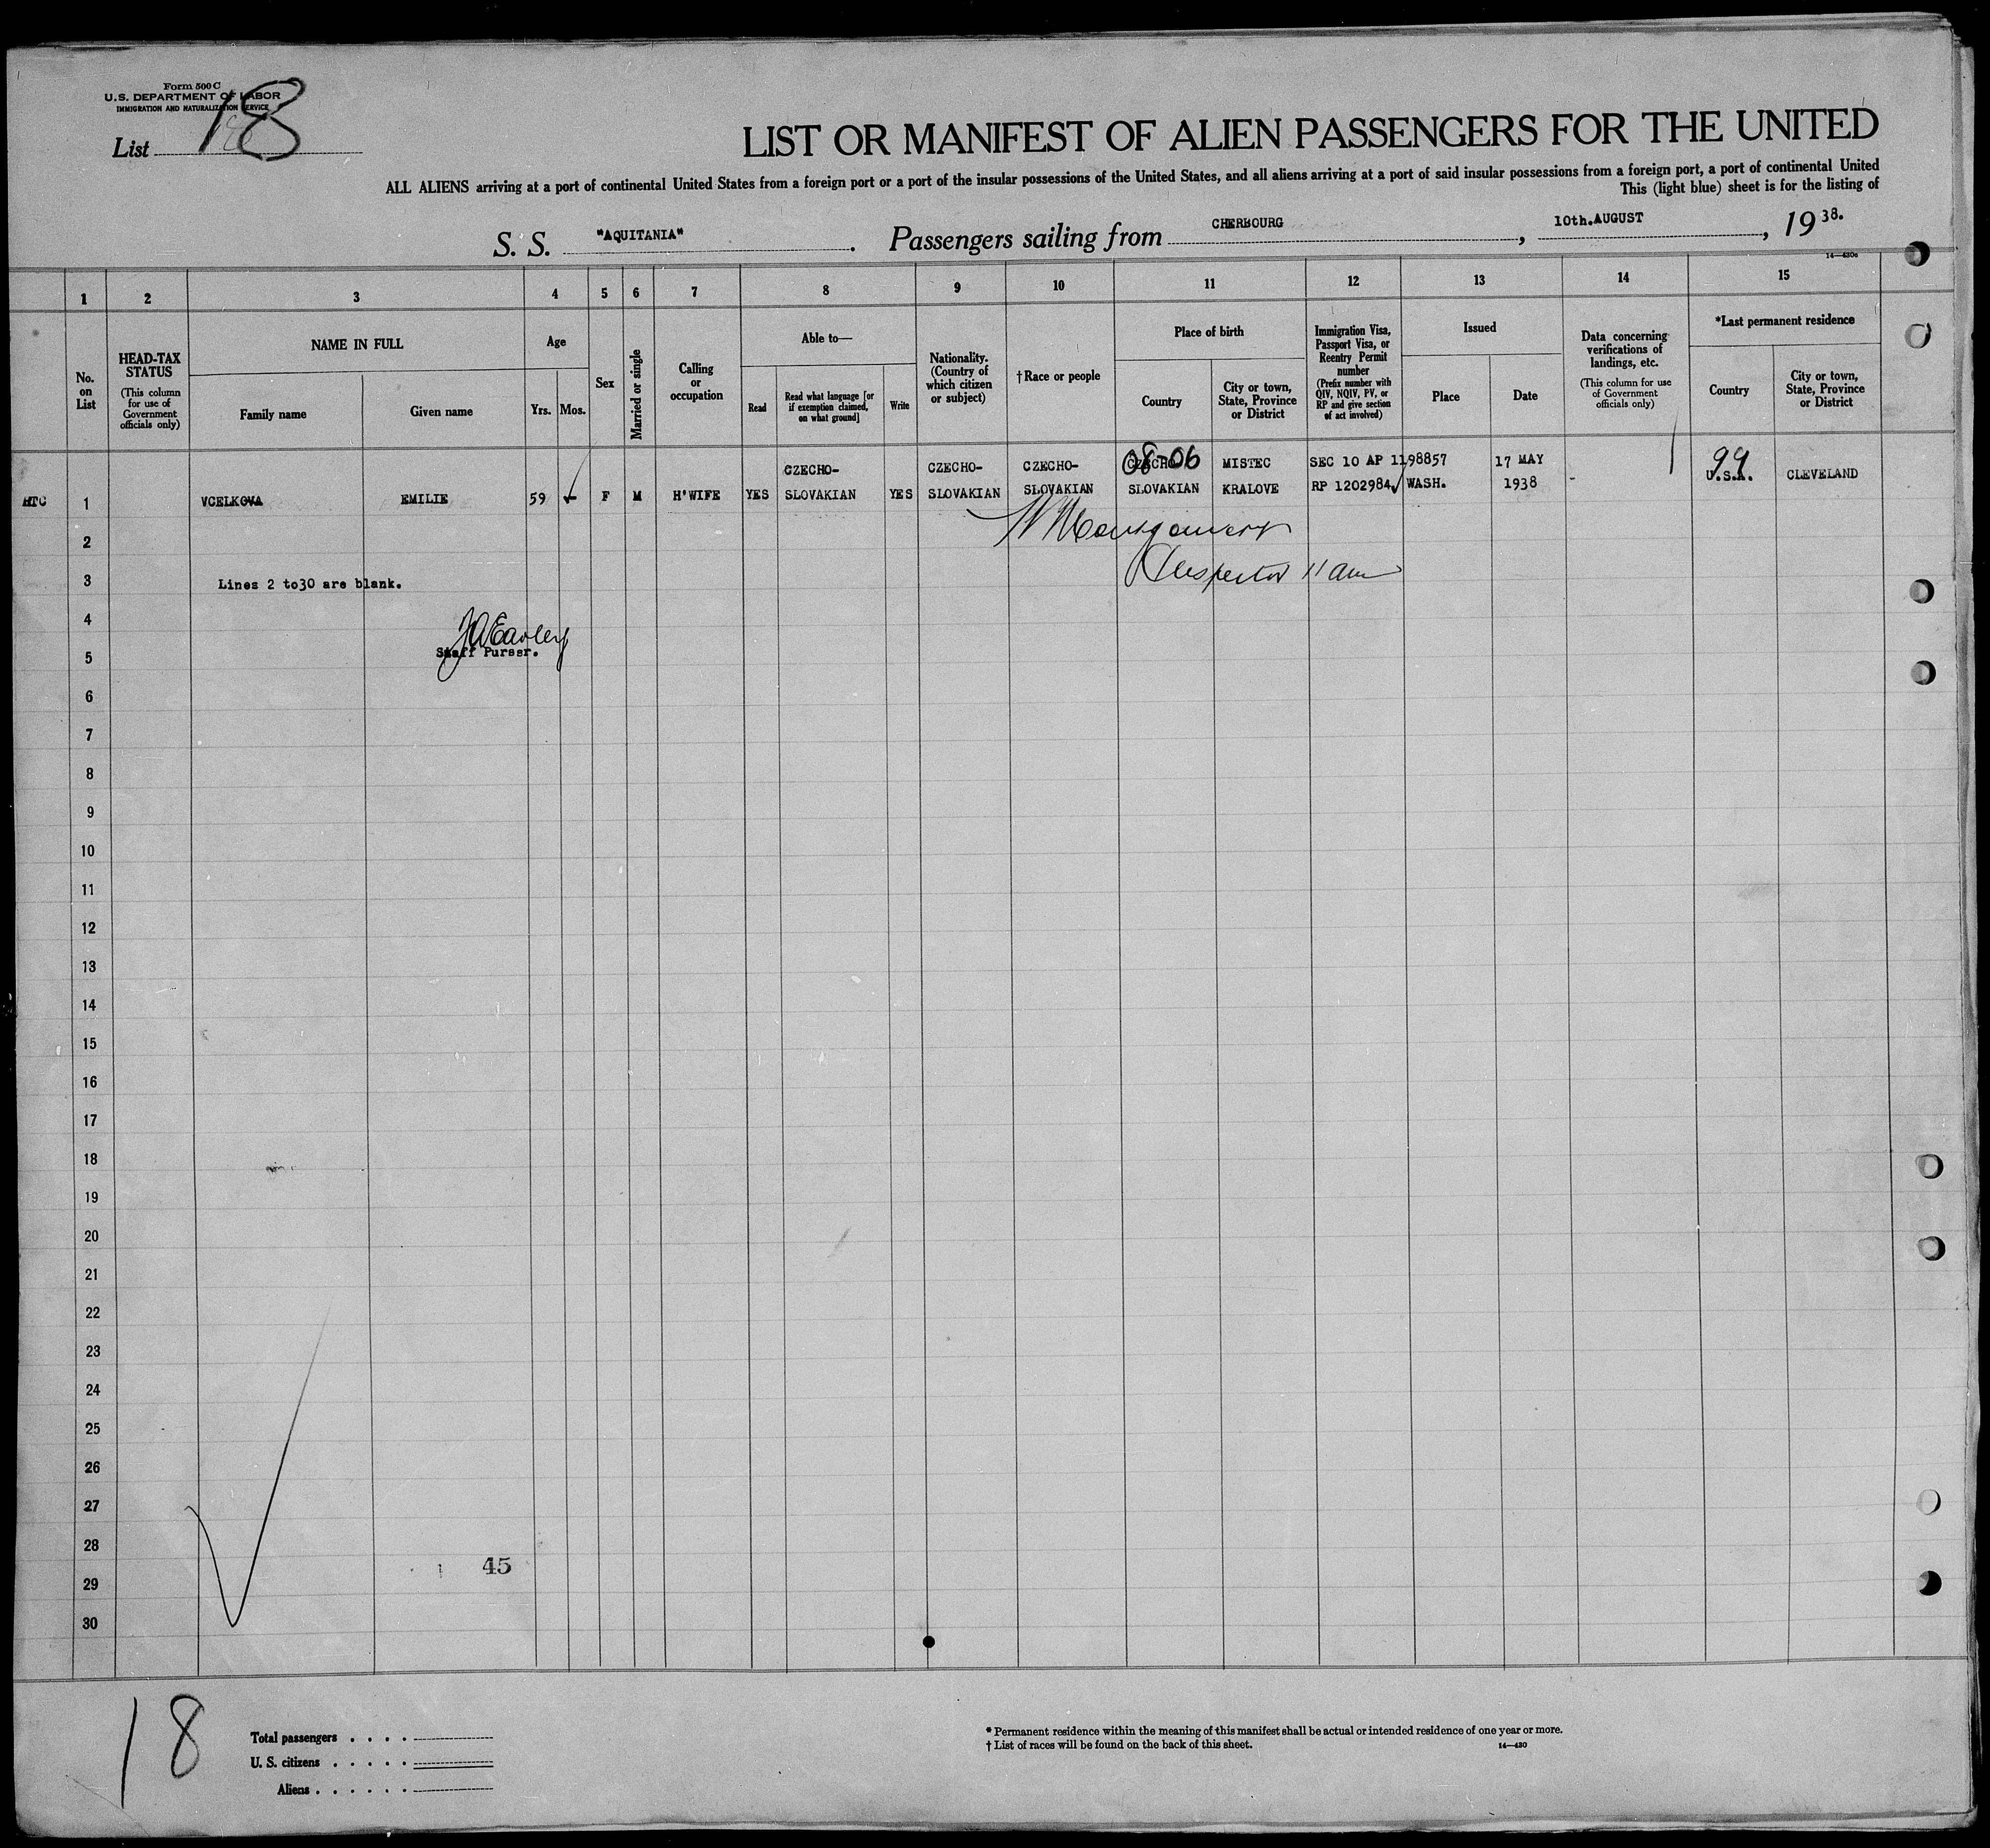 Form 500 C
U.S. DEPARTMENT OF LABOR
IMMIGRATION AND NATURALIZATION SERVICE
List 18
LIST OR MANIFEST OF ALIEN PASSENGERS FOR THE UNITED
ALL ALIENS arriving at a port of continental United States from a foreign port or a port of the insular possessions of the United States, and all aliens arriving at a port of said insular possessions from a foreign port, a port of continental United
This (light blue) sheet is for the listing of
S. S. "AQUITANIA". Passengers sailing from CHERBOURG, 10th.AUGUST, 1938.
1 2 3 4 5 6 7 8 9 10 11 12 13 14 15
No. on List
HEAD-TAX STATUS
(This column for use of Government officials only)
NAME IN FULL
Family name
Given name
Age
Yrs.
Mos.
Sex
Married or single
Calling or occupation
Able to—
Read
Read what language [or if exemption claimed, on what ground]
Write
Nationality. (Country of which citizen or subject)
†Race or people
Place of birth
Country
City or town, State, Province or District
Immigration Visa, Passport Visa, or Reentry Permit number
(Prefix number with QIV, NQIV, PV, or RP and give section of act involved)
Issued
Place
Date
Data concerning verifications of landings, etc.
(This column for use of Government officials only)
*Last permanent residence
Country
City or town, State, Province or District
08-06
99
CZECHO- CZECHO- CZECHO- CZECHO- MISTEC SEC 10 AP 1198857 17 MAY
1 VCELKOVA EMILIE 59 F M H'WIFE YES SLOVAKIAN YES SLOVAKIAN SLOVAKIAN SLOVAKIAN KRALOVE RP 1202984 WASH. 1938 - U.S.A. CLEVELAND
2 Montgomery
3 Lines 2 to30 are blank. Inspector 11 am
4
5 Staff Purser.
6
7
8
9
10
11
12
13
14
15
16
17
18
19
20
21
22
23
24
25
26
27
28
45
29
30
18
Total passengers . . . .
U. S. citizens . . . . .
Aliens . . . . . .
* Permanent residence within the meaning of this manifest shall be actual or intended residence of one year or more.
† List of races will be found on the back of this sheet.
14—430